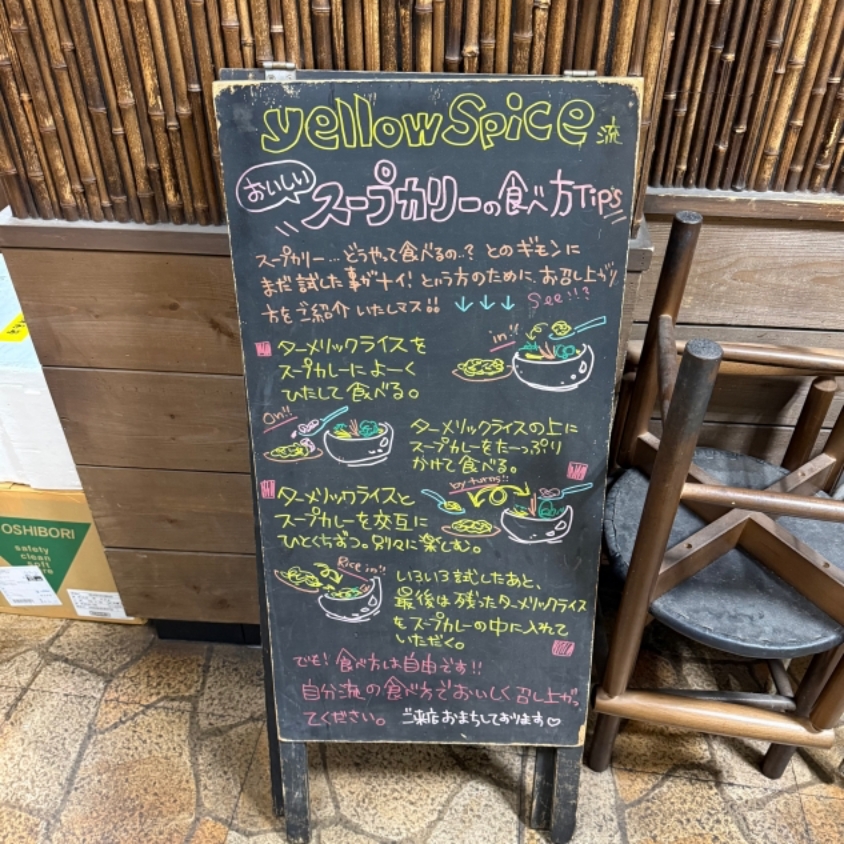 yellow Spice 流
おいしい
スープカリーの食べ方Tips
スープカリー…どうやって食べるの..? とのギモンに
まだ試した事がナイ! という方のために、お召し上がり
方をご紹介いたしマス!! ↓↓↓ See!!?
ターメリックライスを
スープカレーによーく
ひたして食べる。
in!!
On!!
ターメリックライスの上に
スープカレーをたーっぷり
かけて食べる。
by turns!!
ターメリックライスと
スープカレーを交互に
ひとくちずつ。別々に楽しむ。
Rice in!!
いろいろ試したあと、
最後は残ったターメリックライス
をスープカレーの中に入れて
いただく。
でも! 食べ方は自由です!!
自分流の食べ方でおいしく召し上がっ
てください。 ご来店おまちしております♡
OSHIBORI
safety
clean
soft